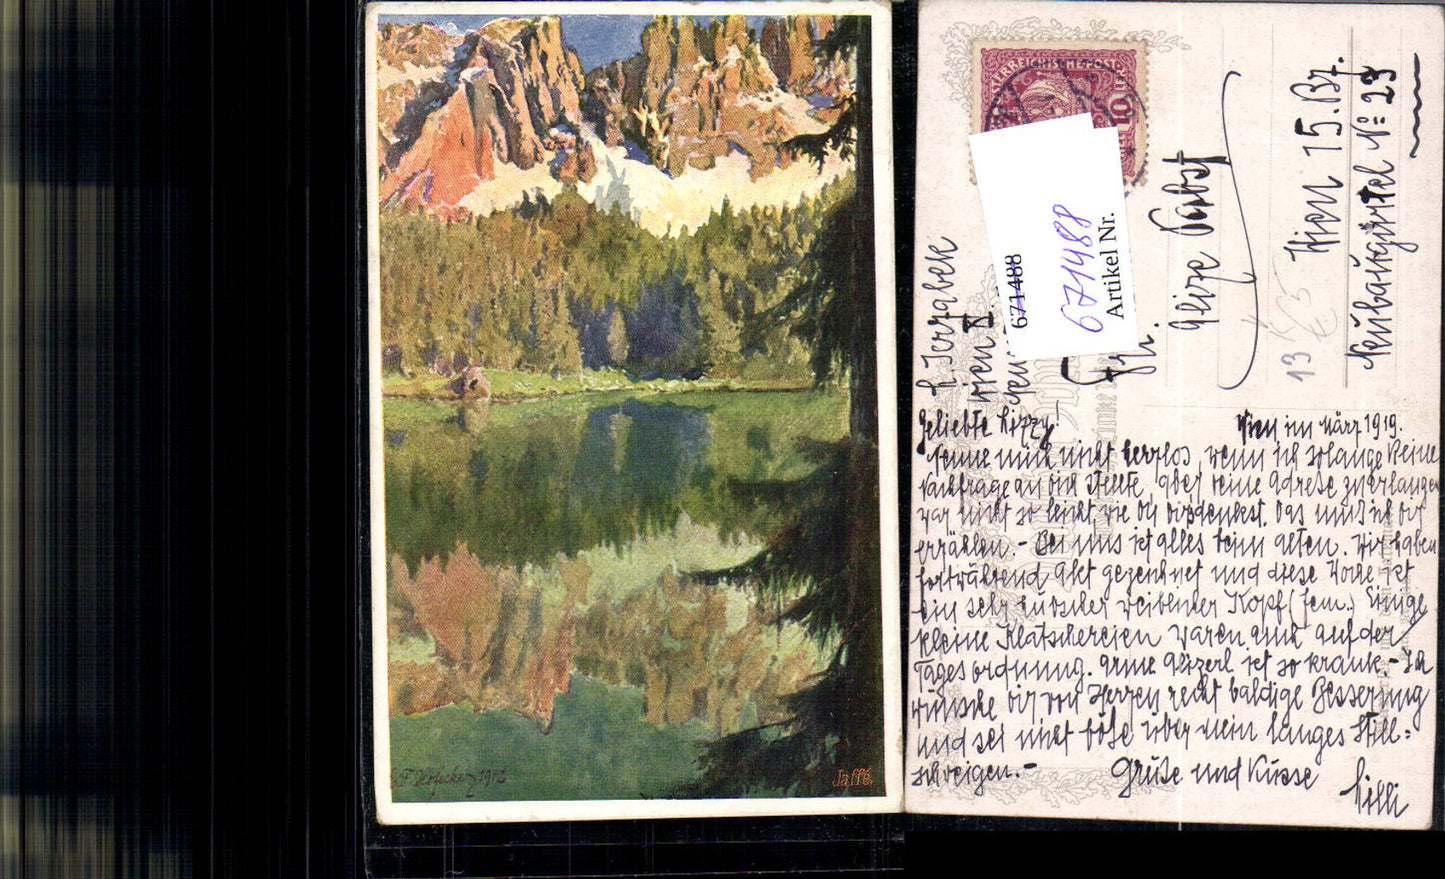 1912
Jaffé.
ÖSTERREICHISCHE POST
10
671488
671488
Artikel Nr.
Frl.
Pabst
Wien 15. Bz.
Neubaugürtel № 29
13
Wien
Geliebte Lizzy!
Wien im März 1919.
Nenne mich nicht herzlos, wenn ich solange keine
Nachfrage an dich stellte, aber deine Adresse zu erlangen
war nicht so leicht wie du dir's denkst. Das muß ich dir
erzählen.- Bei uns ist alles beim alten. Wir haben
fortwährend Akt gezeichnet und diese Woche ist
ein sehr hübscher weiblicher Kopf (fem.) Einige
kleine Klatschereien waren auch auf der
Tagesordnung. Arme ist so krank.- Ich
wünsche dir von Herzen recht baldige Besserung
und sei nicht böse über mein langes Still=
schweigen.- Grüße und Küsse
Lilli